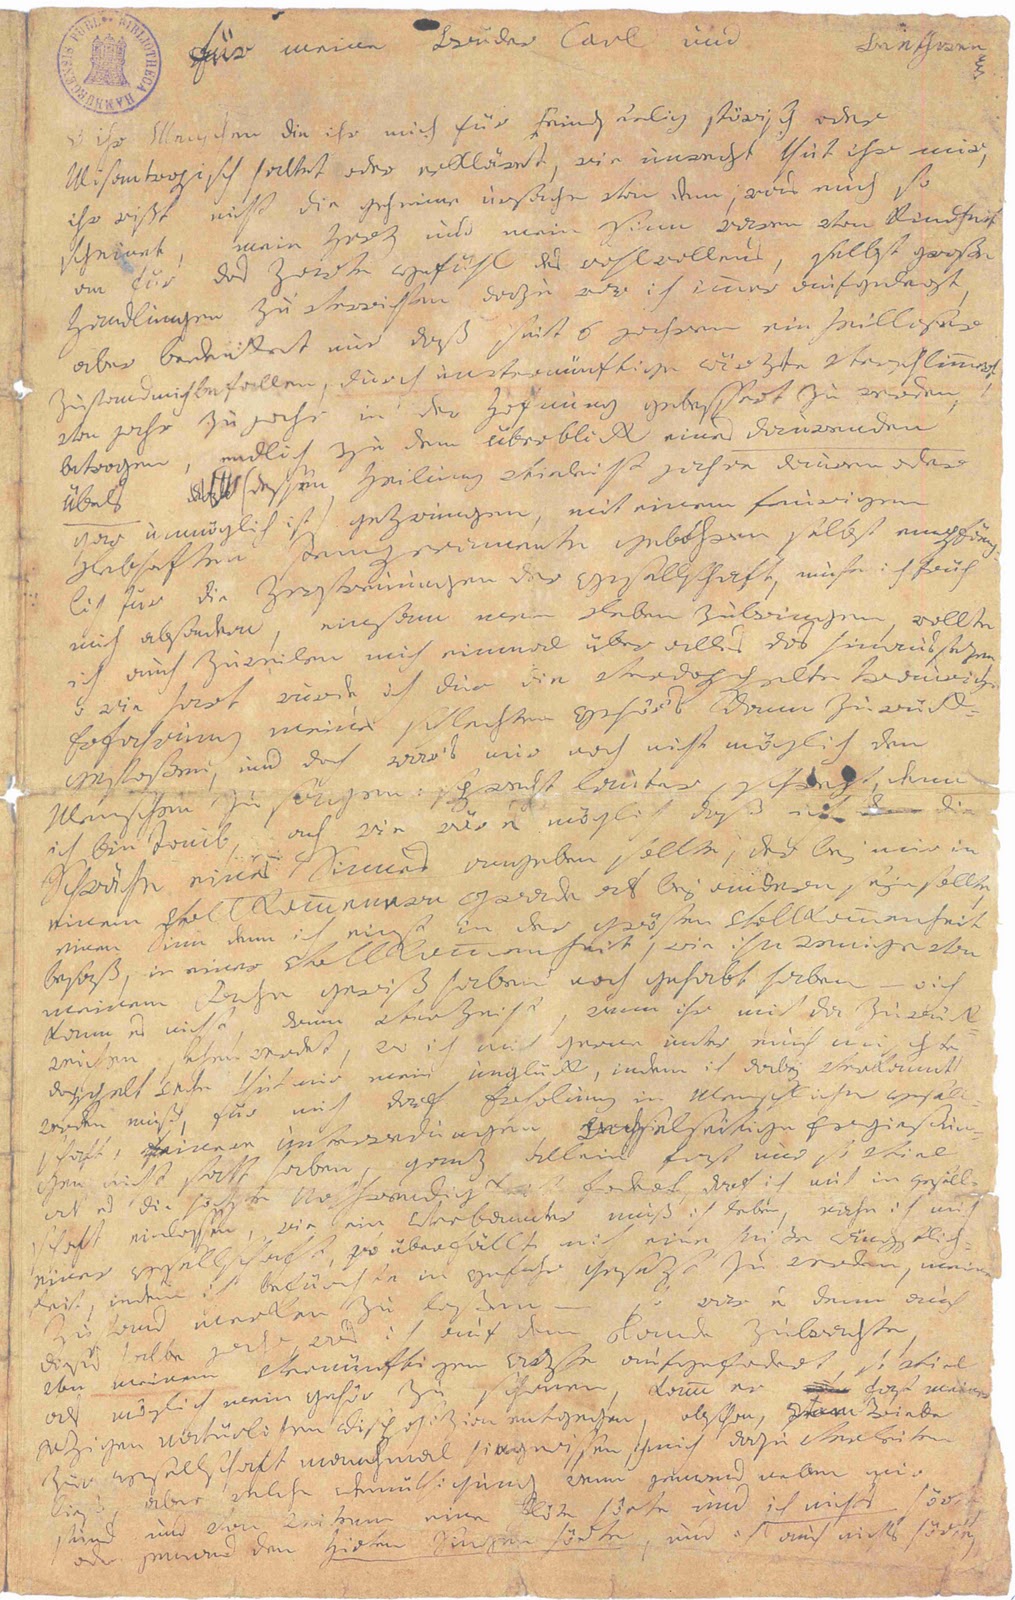 für meine Brüder Carl und Beethowen
BIBLIOTHECA HAMBURGENSIS PUBL.
o ihr Menschen die ihr mich für Feindseelig störisch oder
Misantropisch haltet oder erkläret, wie unrecht thut ihr mir,
ihr wißt nicht die geheime ursache von dem, was euch so
scheinet, mein Herz und mein Sinn waren von Kindheit
an für das Zarte gefühl des wohlwollens, selbst große
Handlungen zu verrichten dazu war ich immer aufgelegt,
aber bedenket nur daß seit 6 jahren ein heilloser
Zustand mich befallen, durch unvernünftige ärzte verschlimmert,
von jahr zu jahr in der Hofnung gebessert zu werden,
betrogen, endlich zu dem überblick eines daurenden
Übels (dessen Heilung vieleicht jahre dauren oder
gar unmöglich ist) gezwungen, mit einem feuerigen
Lebhaften Temperamente gebohren selbst empfäng-
lich für die Zerstreuungen der gesellschaft, muste ich früh
mich absondern, einsam mein Leben zubringen, wollte
ich auch zuweilen mich einmal über alles das hinaussezen,
o wie hart wurde ich dur die verdoppelte traurige
Erfahrung meines schlechten Gehör's dann zurück-
gestoßen, und doch war's mir noch nicht möglich den
Menschen zu sagen: sprecht lauter, schrejt, denn
ich bin taub, ach wie wär es möglich daß ich die
Schwäche eines Sinnes angeben sollte, der bej mir in
einem vollkommenern Grade als bej andern sejn sollte,
einen Sinn denn ich einst in der grösten Vollkommenheit
besaß, in einer Vollkommenheit, wie ihn wenige von
meinem Fache gewiß haben noch gehabt haben – o ich
kann es nicht, drum verzeiht, wenn ihr mich da zurück-
weichen sehen werdet, wo ich mich gerne unter euch mischte
doppelt wehe thut mir mein unglück, indem ich dabej verkannt
werden muß, für mich darf Erholung in Menschlicher gesell-
schaft, feinere unterredungen, wechselseitige Ergießun-
gen nicht statt haben, ganz allein fast nur so viel
als es die höchste Nothwendigkeit fodert, darf ich mich in gesell-
schaft einlassen, wie ein Verbannter muß ich leben, nahe ich mich
einer Gesellschaft, so überfällt mich eine heiße ängstlich-
keit, indem ich befürchte in Gefahr gesezt zu werden, meinen
Zustand merken zu laßen – so war es denn auch
dieses halbe jahr, was ich auf dem Lande zubrachte,
von meinem vernünftigen Arzte aufgefodert, so viel
als möglich mein Gehör zu schonen, kamm er fast meiner
jezigen natürlichen Disposizion entgegen, obschon, vom Triebe
zur Gesellschaft manchmal hingerissen, ich mich dazu verleiten
ließ, aber welche Demüthigung wenn jemand neben mir
stund und von weitem eine Flöte hörte und ich nichts hörte
oder jemand den Hirten Singen hörte, und ich auch nichts hörte,